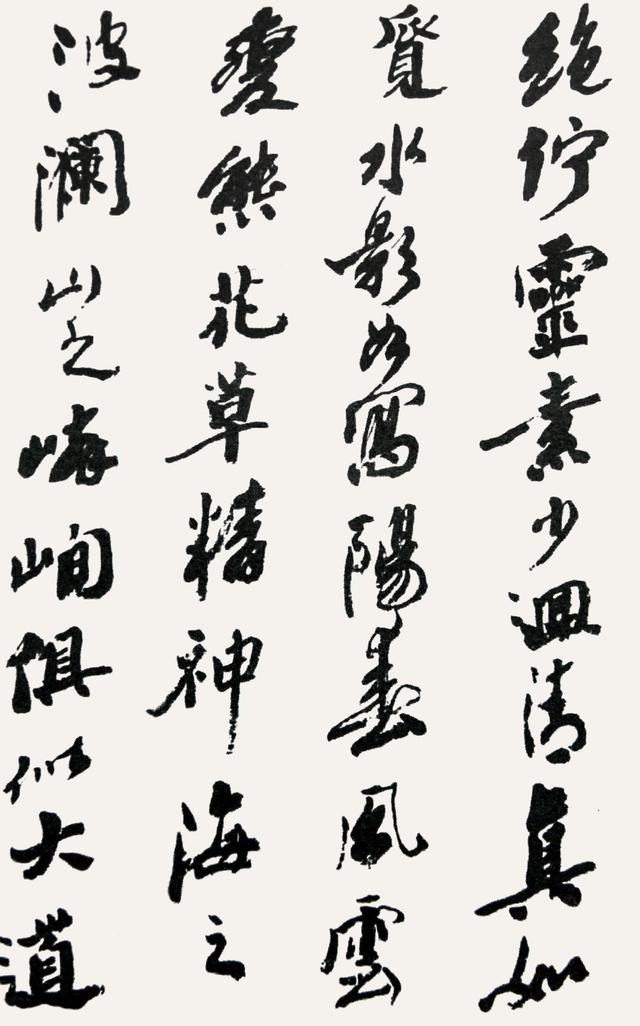 絕佇靈素少迴清真如
覓水影如寫陽春風雲
變態花草精神海之
波瀾山之嶙峋俱似大道